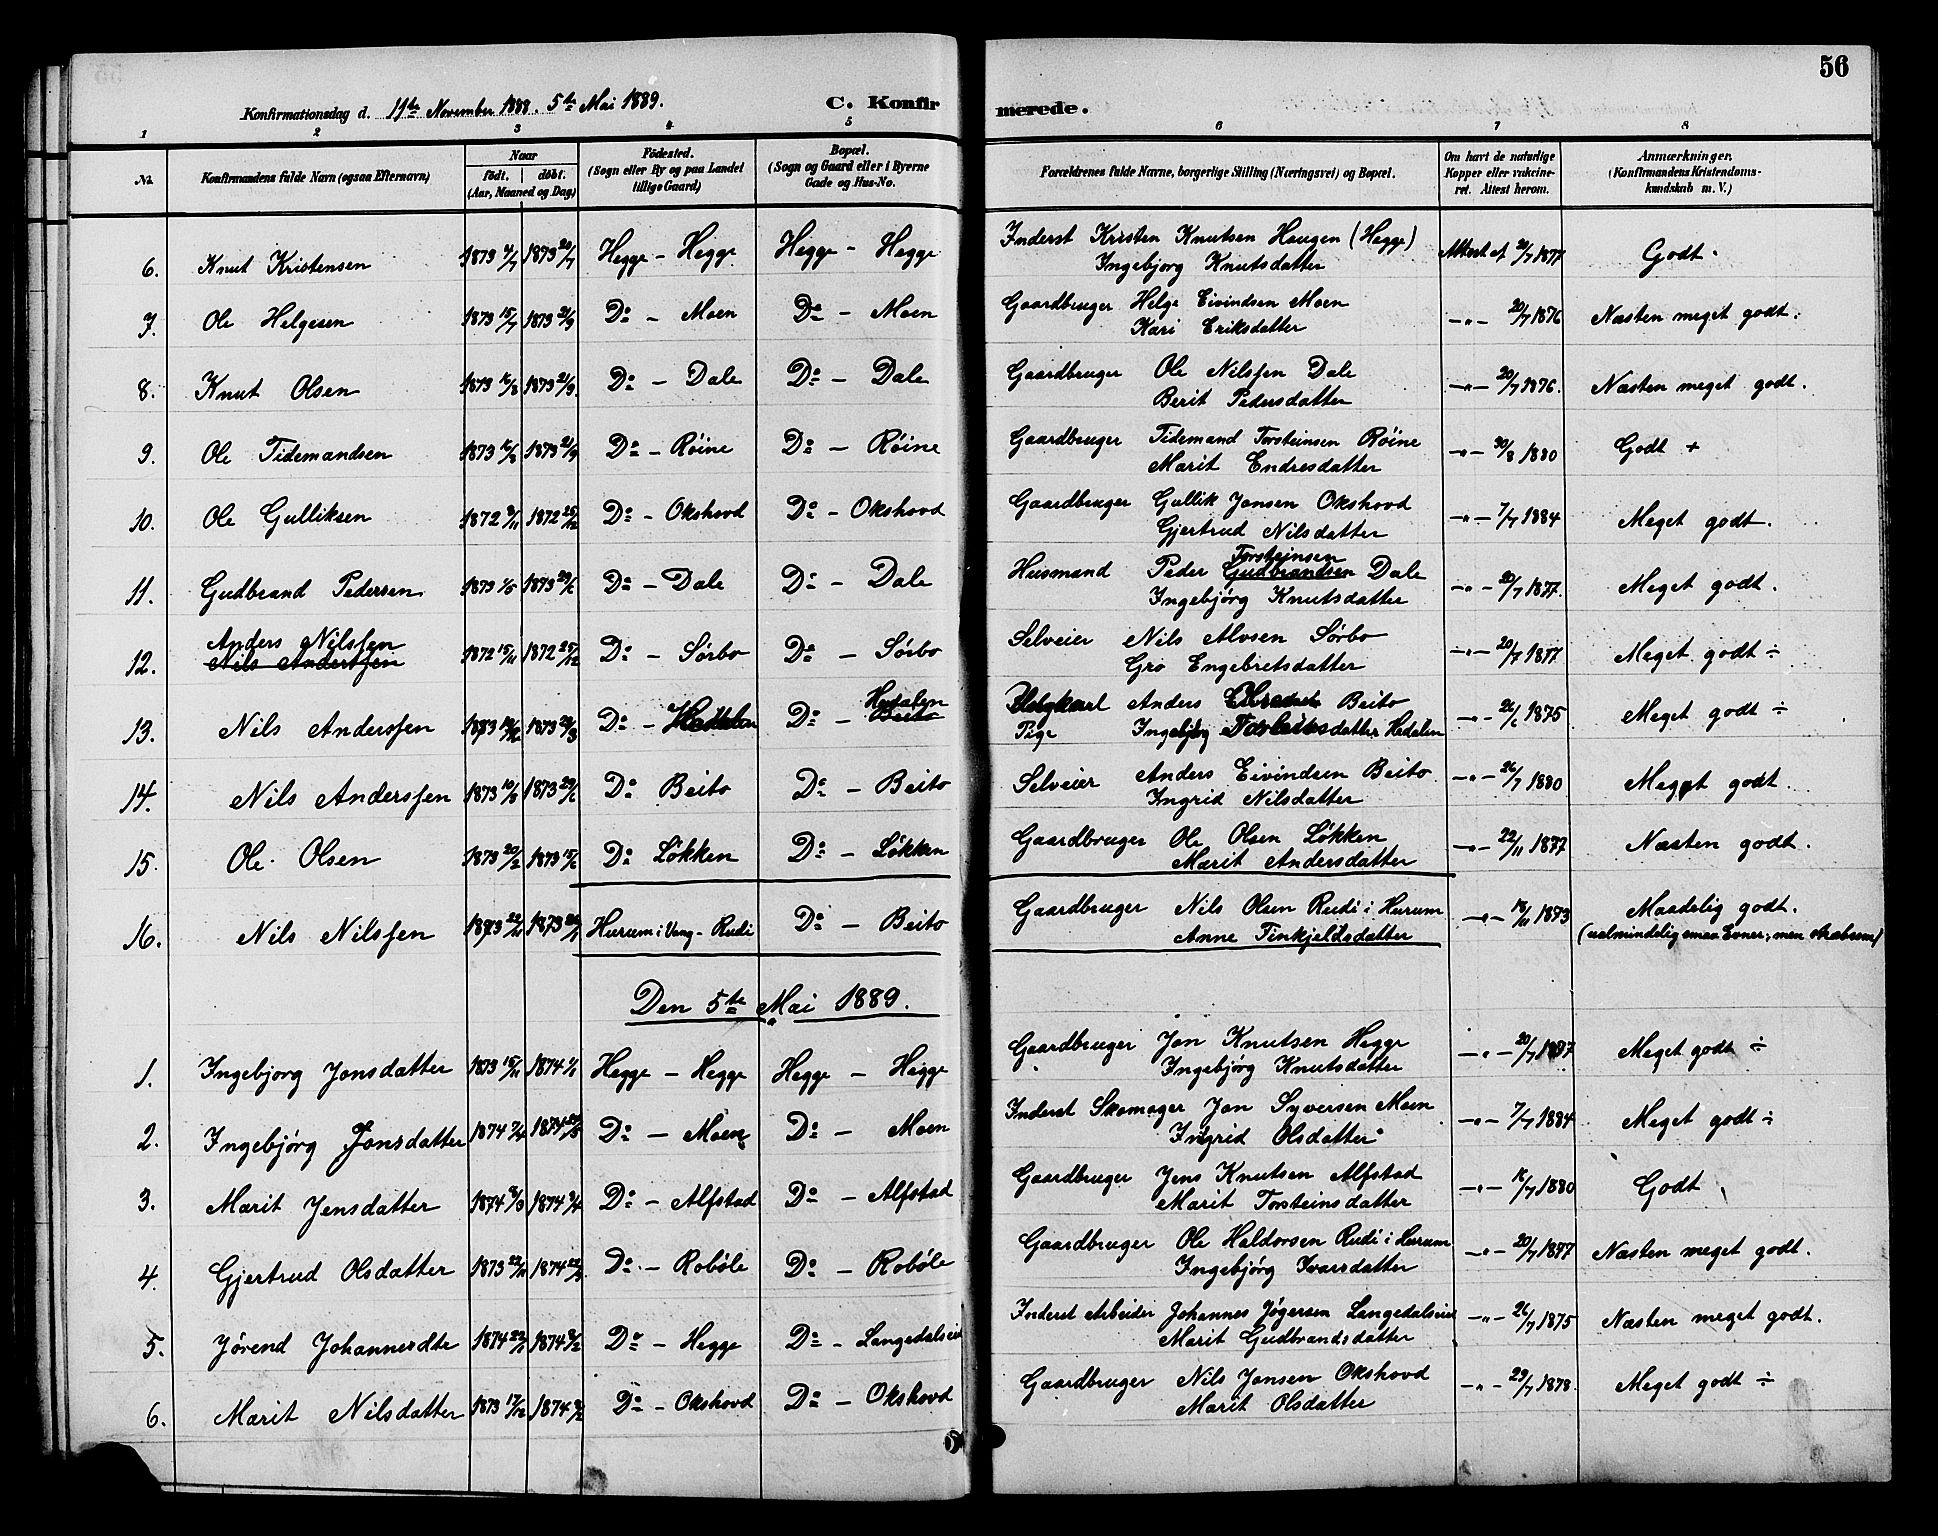 56
Konfirmationsdag d. 11te November 1888. 5te Mai 1889.
C. Konfirmerede.
1 2 3 4 5 6 7 8
No. Konfirmandens fulde Navn (ogsaa Efternavn) Naar født. døbt. (Aar, Maaned og Dag) Fødested. (Sogn eller By og paa Landet tillige Gaard) Bopæl. (Sogn og Gaard eller i Byerne Gade og Hus-No. Forældrenes fulde Navne, borgerlige Stilling (Næringsvei) og Bopæl. Om havt de naturlige Kopper eller vakcineret. Attest herom. Anmærkninger. (Konfirmandens Kristendomskundskab m. V.)
6. Knut Kristensen 1873 1873 20/7 Hegge - Hegge Hegge - Hegge Inderst Kristen Knutsen Haugen (Hegge) Attest af 20/7 1877 Godt.
Ingebjorg Knutsdatter
7. Ole Helgesen 1873 15/7 1873 21/9 Do - Moen Do - Moen Gaardbruger Helge Eivindsen Moen -"- 20/7 1876 Næsten meget godt.
Kari Eriksdatter
8. Knut Olsen 1873 16/8 1873 21/9. Do - Dale Do - Dale Gaardbruger Ole Nilssen Dale -"- 20/7 1876. Næsten meget godt.
Berit Pedersdatter
9. Ole Tidemandsen 1873 16/8 1873 21/9 Do - Røine Do - Røine Gaardbruger Tidemand Torsteinsen Røine -"- 30/8 1880 Godt +
Marit Endresdatter
10. Ole Gulliksen 1872 1872 25/12 Do - Okshovd Do - Okshovd Gaardbruger Gullik Jonsen Okshovd -"- 7/7 1884 Meget godt.
Gjertrud Nilsdatter
Torsteinsen
11. Gudbrand Pedersen 1873 1/5 1873 29/6 Do - Dale Do - Dale Husmand Peder Gudbrandsen Dale -"- 20/7 1877. Meget godt.
Ingebjørg Knutsdatter
Anders Nilssen
12. Nils Anderssen 1872 15/11 1872 25/12 Do - Sørbo Do - Sørbo Selveier Nils Alvsen Sørbo -"- 20/7 1877 Meget godt ÷
Gro Engebretsdatter
Hedalen
13. Nils Anderssen 1873 1873 Do - Hedalen Do - Beito Ungkarl Anders Beito 1875 Meget godt ÷
Pige Ingebjørg Hedalen
14. Nils Anderssen 1873 10/5 1873 29/6 Do Beito Do - Beito Selveier Anders Eivindsen Beito -"- 26/7 1880 Meget godt.
Ingrid Nilsdatter
15. Ole Olsen 1873 20/2 1873 15/6 Do Løkken Do - Løkken Gaardbruger Ole Olsen Løkken -"- 22/11 1877 Næsten godt.
Marit Andersdatter
16. Nils Nilssen 1873 Hurum i Vang - Rudi Do - Beito Gaardbruger Nils Olsen Rudi i Hurum -"- 18/11 1873 Maadelig godt.
Anne Tinkjeldsdatter (ualmindelig smaa Evner, men stræbsom)
Den 5te Mai 1889.
1. Ingebjorg Jonsdatter 1873 15/11 1874 1/1 Hegge - Hegge Hegge - Hegge Gaardbruger Jon Knutsen Hegge -"- 20/7 1877 Meget godt ÷
Ingebjørg Knutsdatter
2. Ingebjørg Jonsdatter 1874 7/4 1874 Do - Moen Do - Moen Inderst Skomager Jon Syversen Moen -"- 7/7 1884 Meget godt ÷
Ingrid Olsdatter
3. Marit Jensdatter 1874 1874 Do - Alfstad Do - Alfstad Gaardbruger Jens Knutsen Alfstad -"- 16/7 1880 Godt
Marit Torsteinsdatter
4. Gjertrud Olsdatter 1873 22/11 1874 22/3 Do - Robøle Do - Robøle Gaardbruger Ole Haldorsen Rudi i Hurum -"- 20/7 1877 Næsten meget godt.
Ingebjørg Ivarsdatter
5. Jørend Johannesdtr 1874 1874 Do - Hegge Do - Langedalseie Inderst Arbeider Johannes Jøgersen Langedalseie -"- 26/7 1875 Næsten meget godt.
Marit Gudbrandsdatter
6. Marit Nilsdatter 1873 17/12 1874 Do - Okshovd Do - Okshovd Gaardbruger Nils Jonsen Okshovd -"- 29/7 1878. Meget godt ÷
Marit Olsdatter